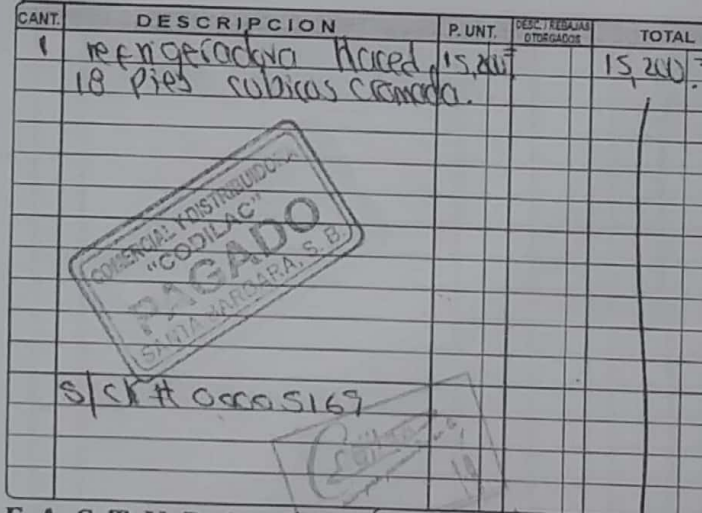 CANT. DESCRIPCION P. UNT. DESC. / REBAJAS OTORGADOS TOTAL
1 refrigeradora Maced. 15,200 15,200
18 Pies cubicos cromada.
COMERCIAL Y DISTRIBUIDORA
"CODILAC"
PAGADO
SANTA BARBARA, S. B.
S/CK # 00005169